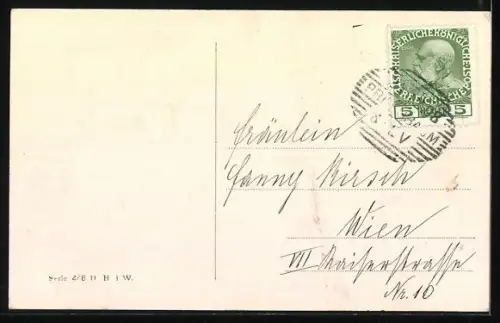 KAISERLICHE KÖNIGLICHE ÖSTERREICHISCHE
5 5
Fräulein
Fanny Kirsch
Wien
VII Kaiserstrasse
Nr. 10
Serie 476 B K i W.